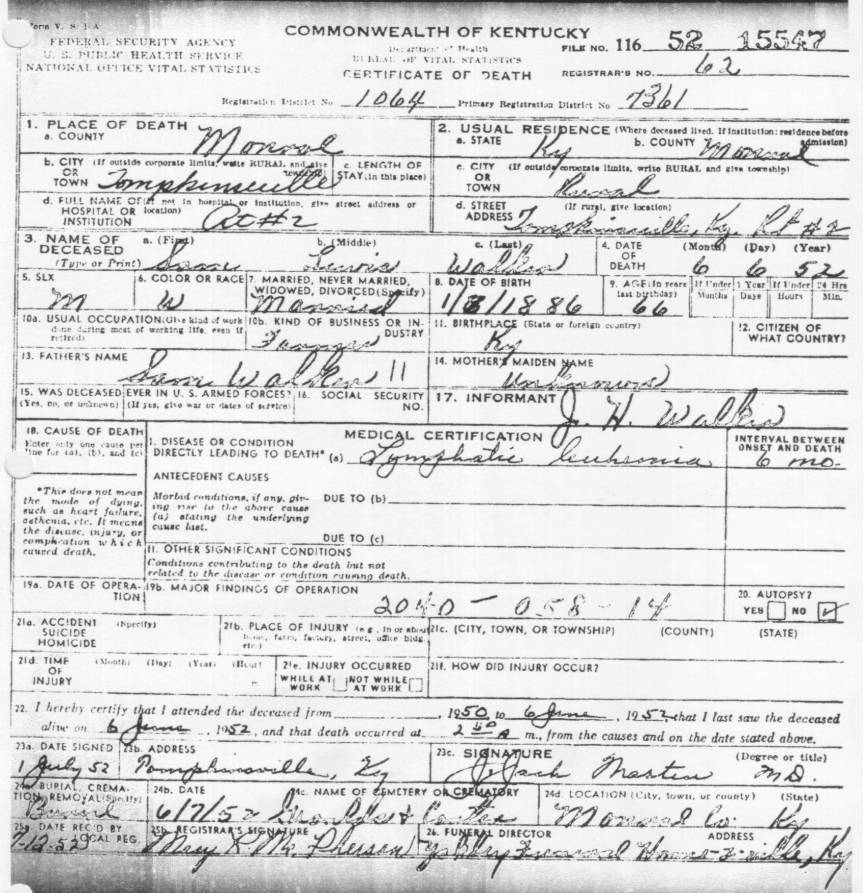 Form V. S. 1-A
COMMONWEALTH OF KENTUCKY
FEDERAL SECURITY AGENCY
U. S. PUBLIC HEALTH SERVICE
NATIONAL OFFICE VITAL STATISTICS
Department of Health
BUREAU OF VITAL STATISTICS
CERTIFICATE OF DEATH
FILE NO. 116 52 15547
REGISTRAR'S NO. 62
Registration District No 1064 Primary Registration District No 7361
1. PLACE OF DEATH
a. COUNTY Monroe
2. USUAL RESIDENCE (Where deceased lived. If institution: residence before admission)
a. STATE Ky b. COUNTY Monroe
b. CITY (If outside corporate limits, write RURAL and give township)
OR TOWN Tompkinsville
c. LENGTH OF STAY (in this place)
c. CITY (If outside corporate limits, write RURAL and give township)
OR TOWN Rural
d. FULL NAME OF (If not in hospital or institution, give street address or location)
HOSPITAL OR INSTITUTION Rt #2
d. STREET ADDRESS (If rural, give location)
Tompkinsville, Ky. Rt #2
3. NAME OF DECEASED (Type or Print)
a. (First) Sam b. (Middle) Lewis c. (Last) Walker
4. DATE OF DEATH (Month) (Day) (Year) 6 6 52
5. SEX M
6. COLOR OR RACE W
7. MARRIED, NEVER MARRIED, WIDOWED, DIVORCED (Specify) Married
8. DATE OF BIRTH 1886
9. AGE (In years last birthday) 66 If Under 1 Year Months Days If Under 24 Hrs Hours Min.
10a. USUAL OCCUPATION (Give kind of work done during most of working life, even if retired)
10b. KIND OF BUSINESS OR INDUSTRY Farmer
11. BIRTHPLACE (State or foreign country) Ky
12. CITIZEN OF WHAT COUNTRY?
13. FATHER'S NAME Sam Walker
14. MOTHER'S MAIDEN NAME Unknown
15. WAS DECEASED EVER IN U. S. ARMED FORCES?
(Yes, no, or unknown) (If yes, give war or dates of service)
16. SOCIAL SECURITY NO.
17. INFORMANT J. H. Walker
18. CAUSE OF DEATH
Enter only one cause per line for (a), (b), and (c)
MEDICAL CERTIFICATION
I. DISEASE OR CONDITION DIRECTLY LEADING TO DEATH* (a) Lymphatic leukemia
INTERVAL BETWEEN ONSET AND DEATH
6 mo.
*This does not mean the mode of dying, such as heart failure, asthenia, etc. It means the disease, injury, or complication which caused death.
ANTECEDENT CAUSES
Morbid conditions, if any, giving rise to the above cause (a) stating the underlying cause last.
DUE TO (b)
DUE TO (c)
II. OTHER SIGNIFICANT CONDITIONS
Conditions contributing to the death but not related to the disease or condition causing death.
19a. DATE OF OPERATION
19b. MAJOR FINDINGS OF OPERATION
2040 - 058 - 14
20. AUTOPSY?
YES NO
21a. ACCIDENT SUICIDE HOMICIDE (Specify)
21b. PLACE OF INJURY (e.g., in or about home, farm, factory, street, office bldg. etc.)
21c. (CITY, TOWN, OR TOWNSHIP) (COUNTY) (STATE)
21d. TIME OF INJURY (Month) (Day) (Year) (Hour) m
21e. INJURY OCCURRED
WHILE AT WORK NOT WHILE AT WORK
21f. HOW DID INJURY OCCUR?
22. I hereby certify that I attended the deceased from , 1950 to 6 June , 1952, that I last saw the deceased
alive on 6 June , 1952, and that death occurred at m., from the causes and on the date stated above.
23a. DATE SIGNED 1 July 52
23b. ADDRESS Tompkinsville, Ky
23c. SIGNATURE (Degree or title)
J. Jack Martin M.D.
24a. BURIAL, CREMATION, REMOVAL (Specify) Burial
24b. DATE 6/7/52
24c. NAME OF CEMETERY OR CREMATORY
24d. LOCATION (City, town, or county) (State)
Monroe Co. Ky
25a. DATE REC'D BY LOCAL REG.
25b. REGISTRAR'S SIGNATURE McPherson
26. FUNERAL DIRECTOR ADDRESS
Funeral Home Ky